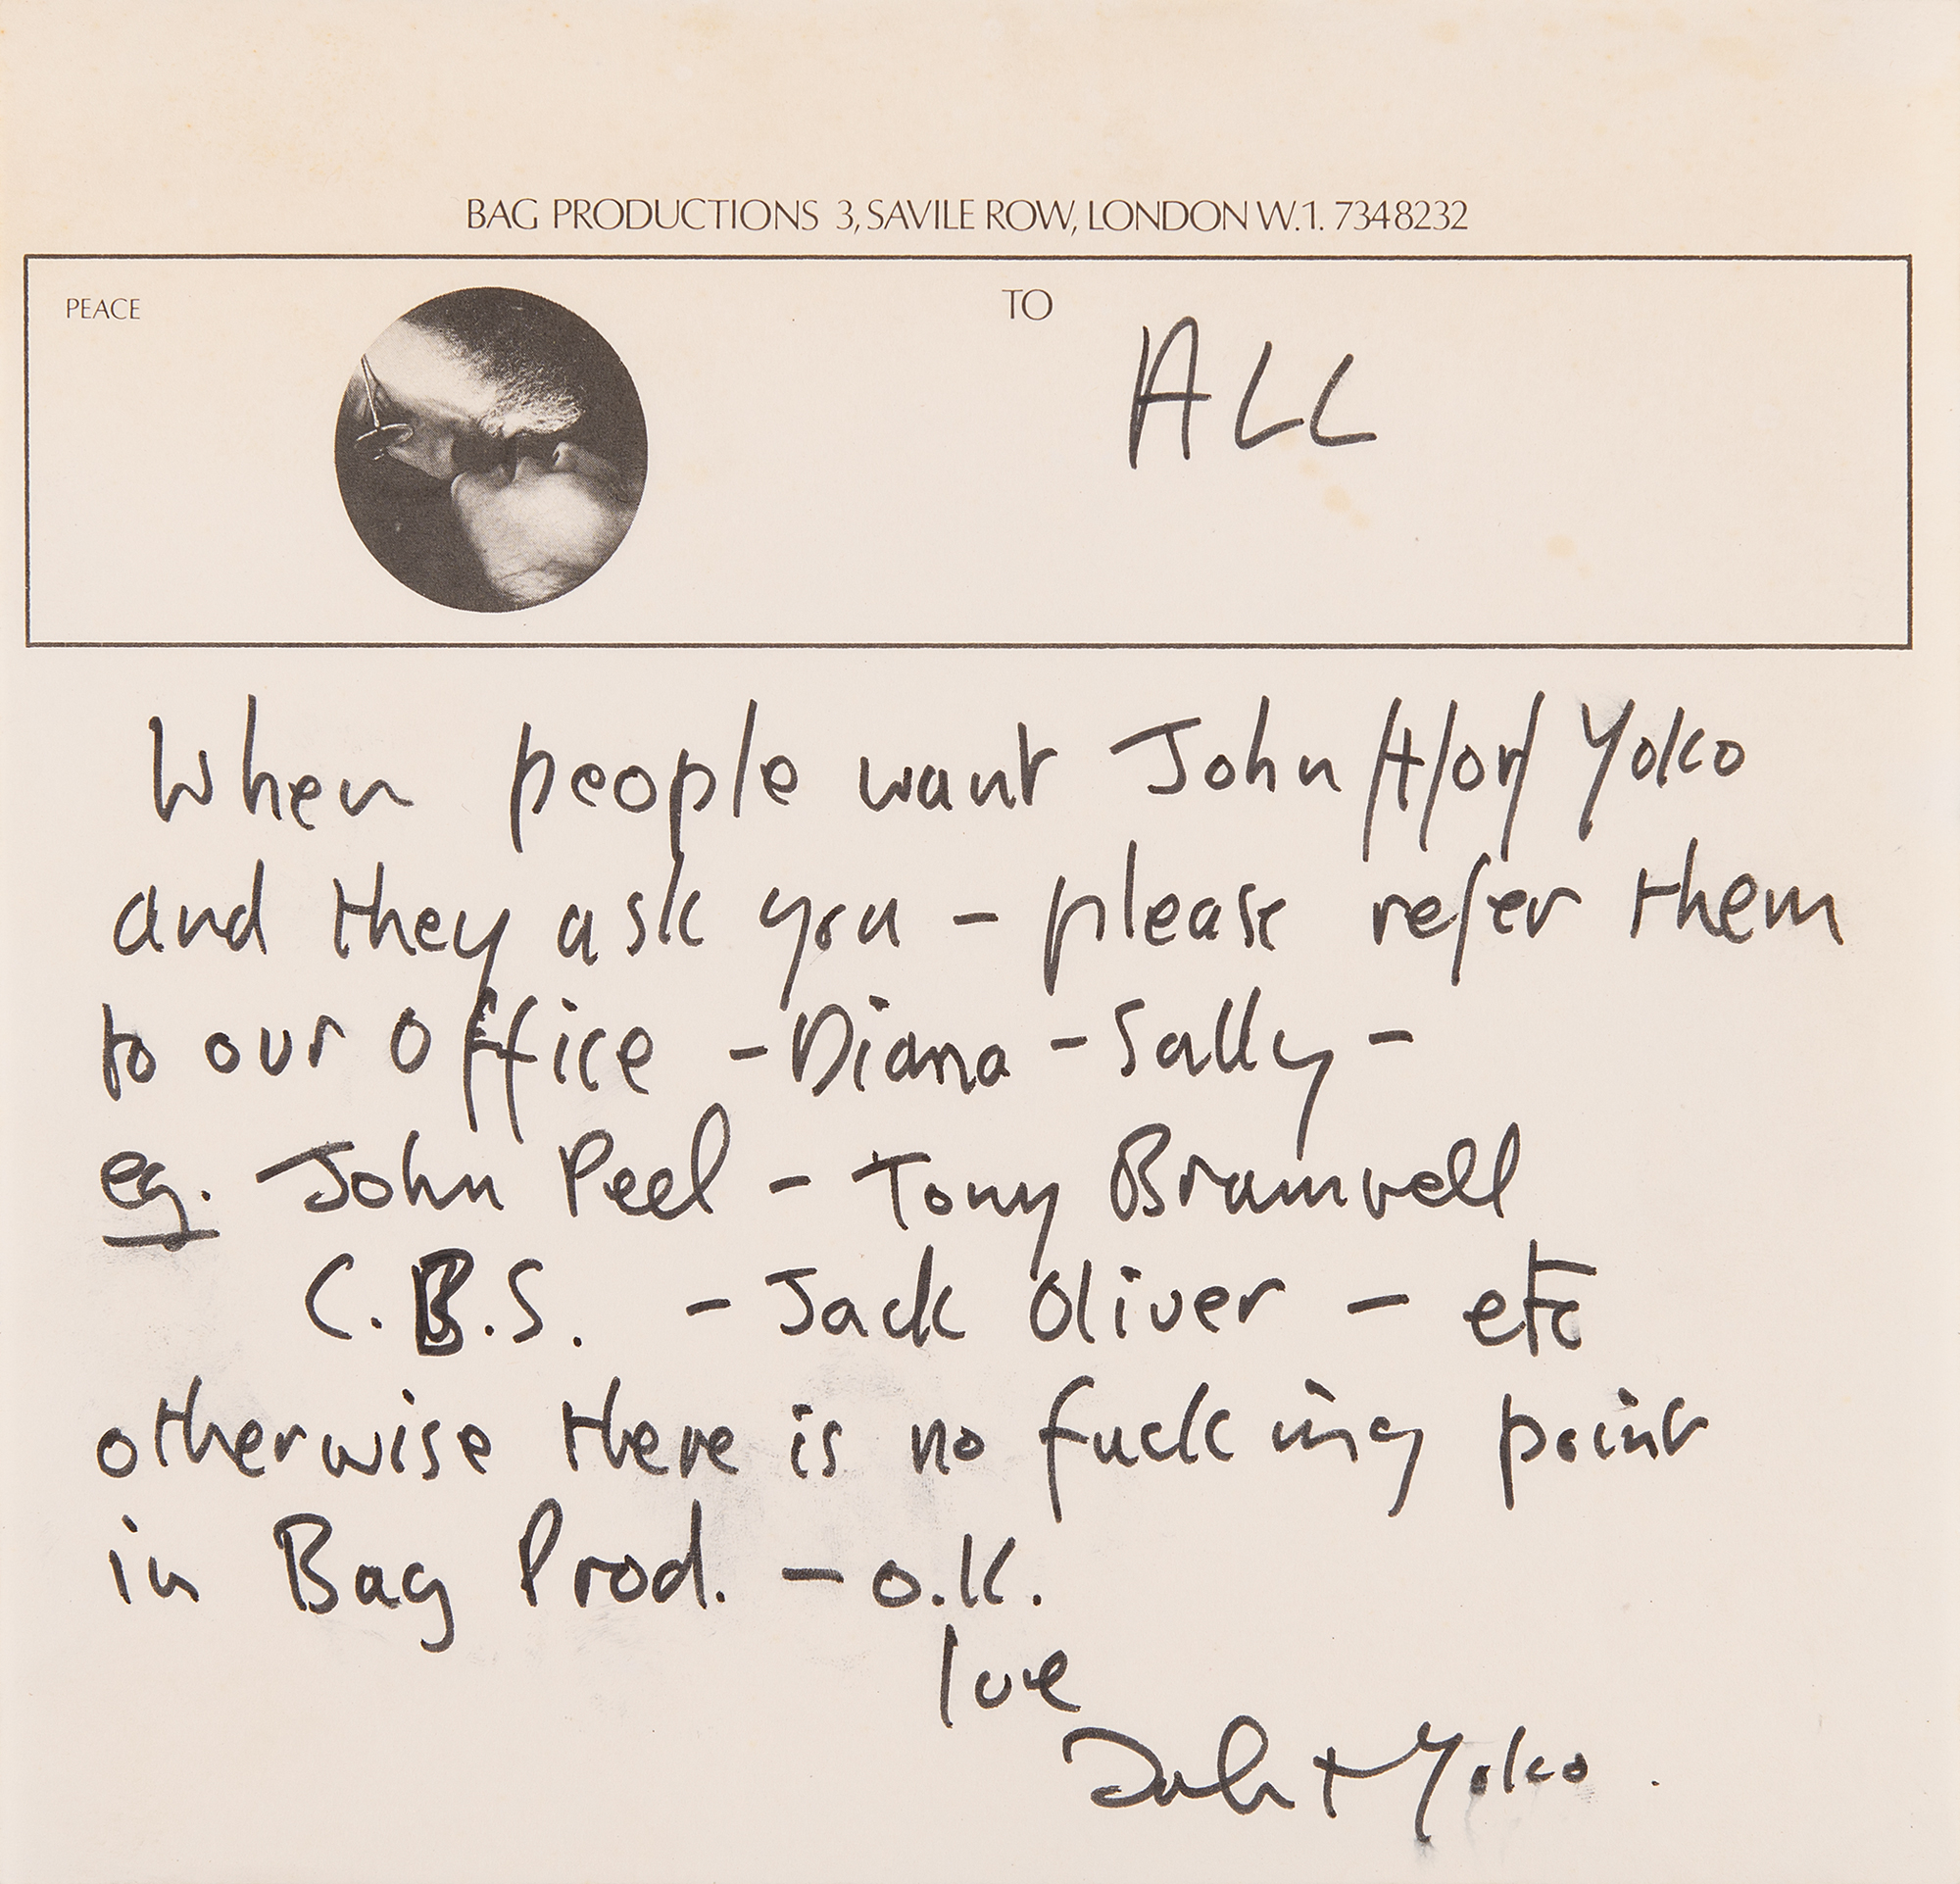 BAG PRODUCTIONS 3, SAVILE ROW, LONDON W.1. 7348232
PEACE
TO
ALL
When people want John /+/or/ Yoko
and they ask you - please refer them
to our office - Diana - Sally -
eg. John Peel - Tony Bramwell
C.B.S. - Jack Oliver - etc
otherwise there is no fucking point
in Bag Prod. - O.K.
love
John + Yoko.